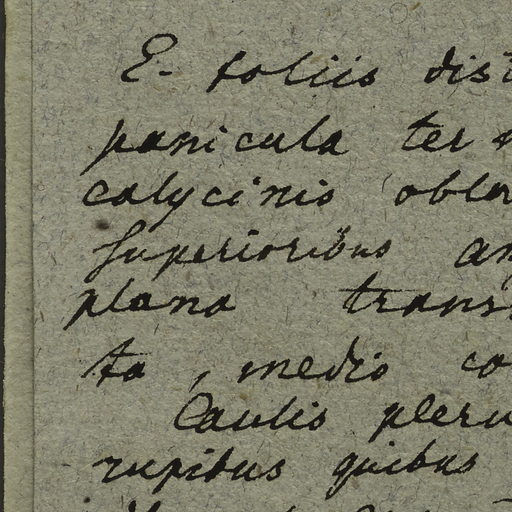 E. foliis dist
panicula ter
calycinis oblon
superioribus an
plana trans
ta, medio co
Caulis pleru
rupibus quibus